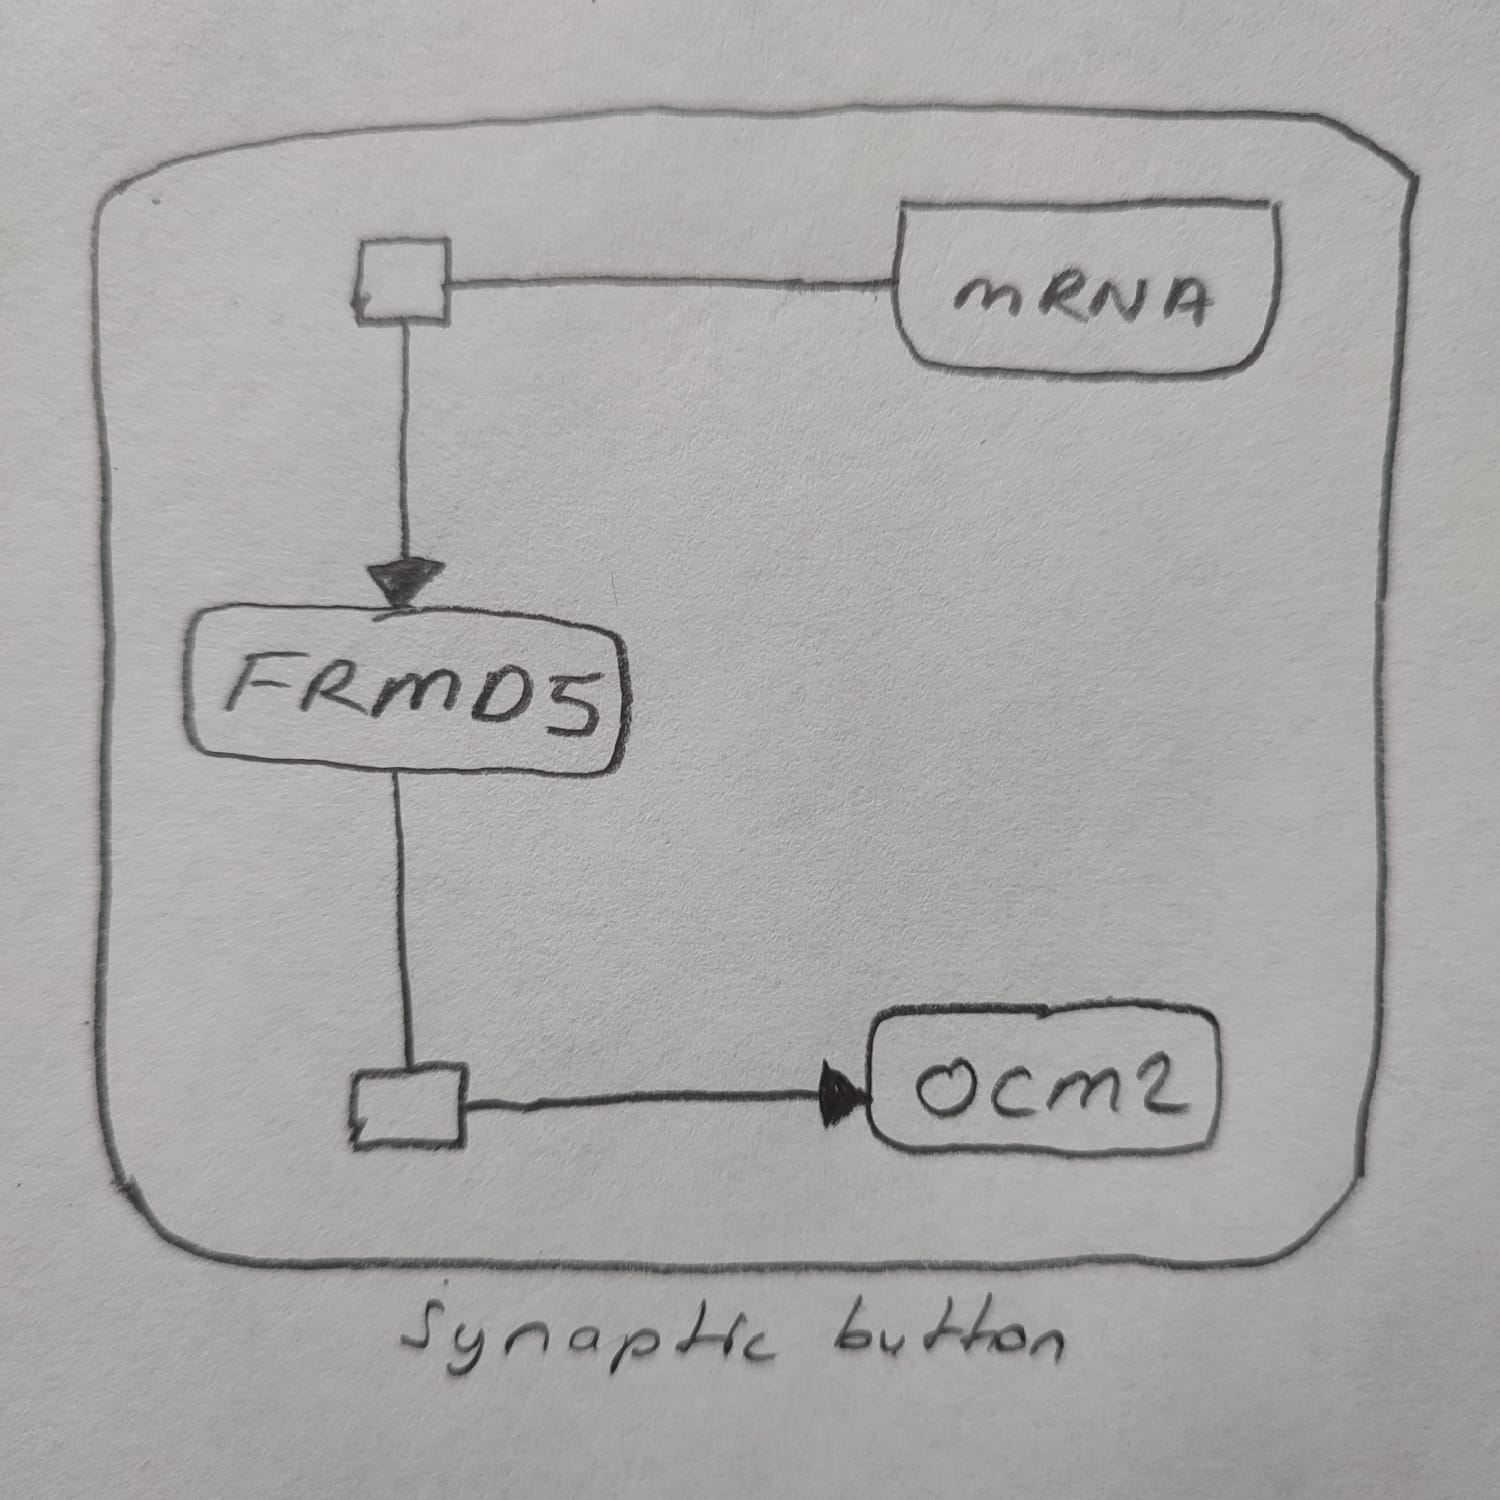 mRNA
FRMD5
OCM2
Synaptic button